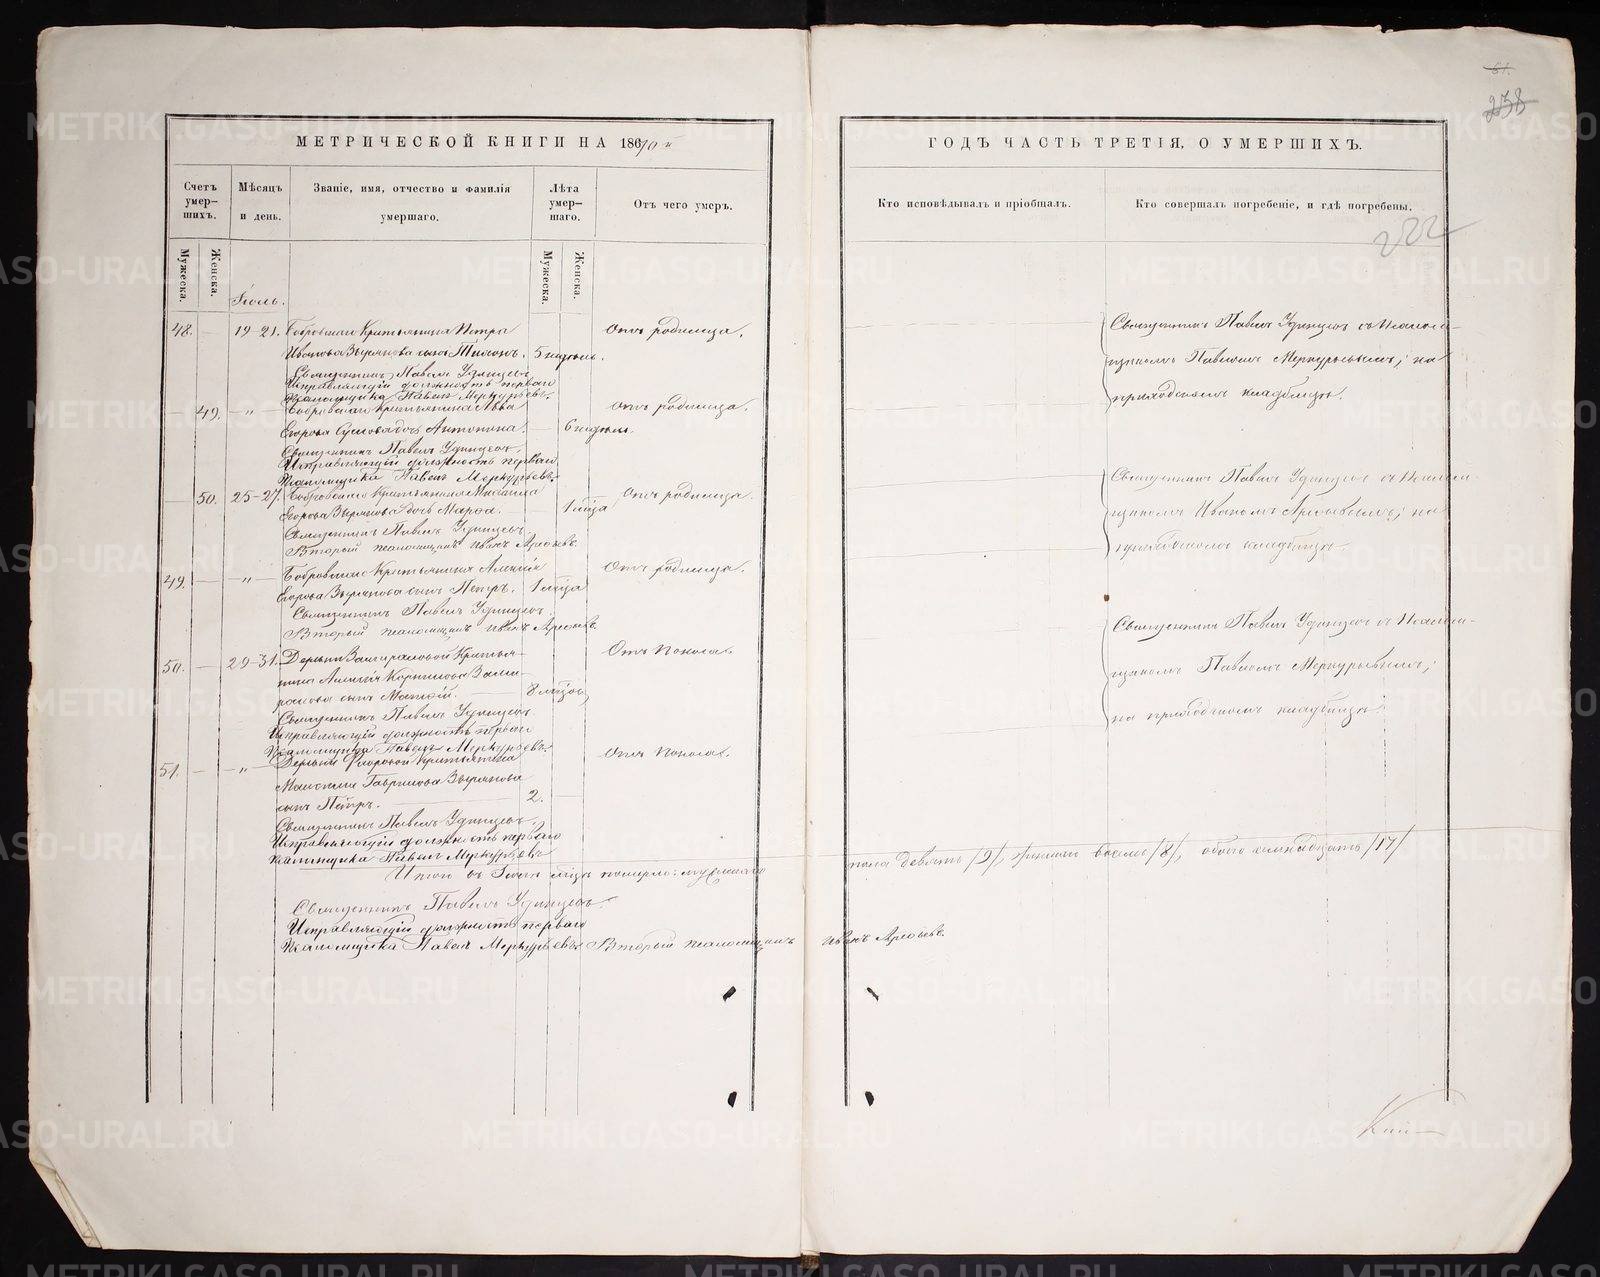 61.
238
МЕТРИЧЕСКОЙ КНИГИ НА 1870й
ГОДЪ ЧАСТЬ ТРЕТІЯ, О УМЕРШИХЪ.
Счетъ умер-
шихъ.
Мѣсяцъ
и день.
Званіе, имя, отчество и фамилія
умершаго.
Лѣта
умер-
шаго.
Отъ чего умеръ.
Кто исповѣдывалъ и пріобщалъ.
Кто совершалъ погребеніе, и гдѣ погребены.
222
Мужеска.
Женска.
Мужеска.
Женска.
Іюль.
48. — 19-21. Бобровскаго Крестьянина Петра
Иванова Зырянова сынъ 5 недѣль.
Отъ родимца.
Священникъ Павелъ Удинцевъ
Исправляющій должность перваго
Псаломщика Павелъ Меркурьевъ.
— 49. — „ — Бобровскаго Крестьянина Льва
Егорова дочь Антонина. — 6 недѣль.
Отъ родимца.
Священникъ Павелъ Удинцевъ.
Исправляющій должность перваго
Псаломщика Павелъ Меркурьевъ.
— 50. 25-27. Бобровскаго Крестьянина Михаила
Егорова Зырянова дочь Марѳа. — 1 мѣсяца
Отъ родимца.
Священникъ Павелъ Удинцевъ
Второй псаломщикъ Иванъ
49. — „ — Бобровскаго Крестьянина Алексѣя
Егорова Зырянова сынъ Петръ. 1 мѣсяца
Отъ родимца.
Священникъ Павелъ Удинцевъ.
Второй псаломщикъ Иванъ
50. — 29-31. Деревни Крестья-
нина Алексѣя Корнилова
сынъ Матѳій. — 8 мѣсяцов.
Отъ поноса.
Священникъ Павелъ Удинцевъ.
Исправляющій должность перваго
Псаломщика Павелъ Меркурьевъ.
51. — „ — Деревни Крестьянина
Гаврилова Зырянова
сынъ Петръ. — 2. —
Отъ поноса.
Священникъ Павелъ Удинцевъ.
Исправляющій должность перваго
Псаломщика Павелъ Меркурьевъ
Итого въ Іюлѣ мѣсяцѣ померло: мужескаго
пола девять /9/, женска восемь /8/, обоего семнадцать /17/
Священникъ Павелъ Удинцевъ.
Исправляющій должность перваго
Псаломщика Павелъ Меркурьевъ Второй псаломщикъ Иванъ
Священникъ Павелъ Удинцевъ съ Псалом-
щикомъ Павломъ Меркурьевымъ; на
приходскомъ кладбищѣ.
Священникъ Павелъ Удинцевъ съ Псалом-
щикомъ Иваномъ на
приходскомъ кладбищѣ.
Священникъ Павелъ Удинцевъ съ Псалом-
щикомъ Павломъ Меркурьевымъ;
на приходскомъ кладбищѣ.
METRIKI.GASO-URAL.RU